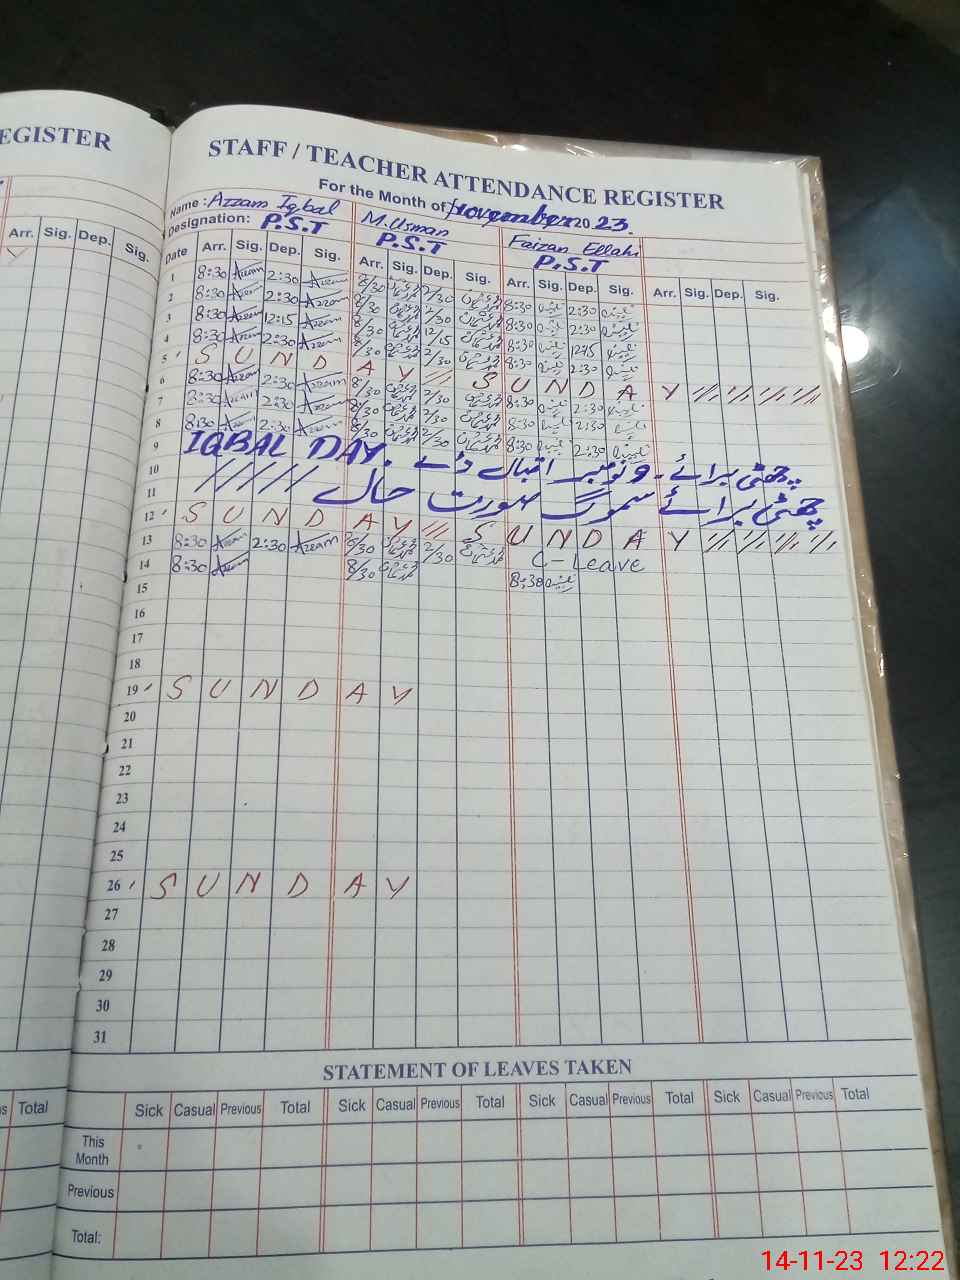 EGISTER
STAFF / TEACHER ATTENDANCE REGISTER
For the Month of November 2023.
Name : Azzam Iqbal M.Usman Faizan Ellahi
Designation: P.S.T P.S.T P.S.T
Arr. Sig. Dep. Sig.
Date Arr. Sig. Dep. Sig. Arr. Sig. Dep. Sig. Arr. Sig. Dep. Sig. Arr. Sig. Dep. Sig.
1 8:30 Azzam 2:30 Azzam 8/30 2/30 8:30 2:30
2 8:30 Azzam 2:30 Azzam 8/30 2/30 8:30 2:30
3 8:30 Azzam 12:15 Azzam 8/30 12/15 8:30 12:15
4 8:30 Azzam 2:30 Azzam 8/30 2/30 8:30 2:30
5 S U N D A Y S U N D A Y
6 8:30 Azzam 2:30 Azzam 8/30 2/30 8:30 2:30
7 8:30 Azzam 2:30 Azzam 8/30 2/30 8:30 2:30
8 8:30 Azzam 2:30 Azzam 8/30 2/30 8:30 2:30
9 IQBAL DAY. چھٹی برائے ۔ ۹ نومبر اقبال ڈے
10 چھٹی برائے سموگ صورت حال
11
12 S U N D A Y S U N D A Y
13 8:30 Azzam 2:30 Azzam 8/30 2/30 C-Leave
14 8:30 Azzam 8/30 8:30
15
16
17
18
19 S U N D A Y
20
21
22
23
24
25
26 S U N D A Y
27
28
29
30
31
STATEMENT OF LEAVES TAKEN
Total Sick Casual Previous Total Sick Casual Previous Total Sick Casual Previous Total Sick Casual Previous Total
This Month
Previous
Total:
14-11-23 12:22